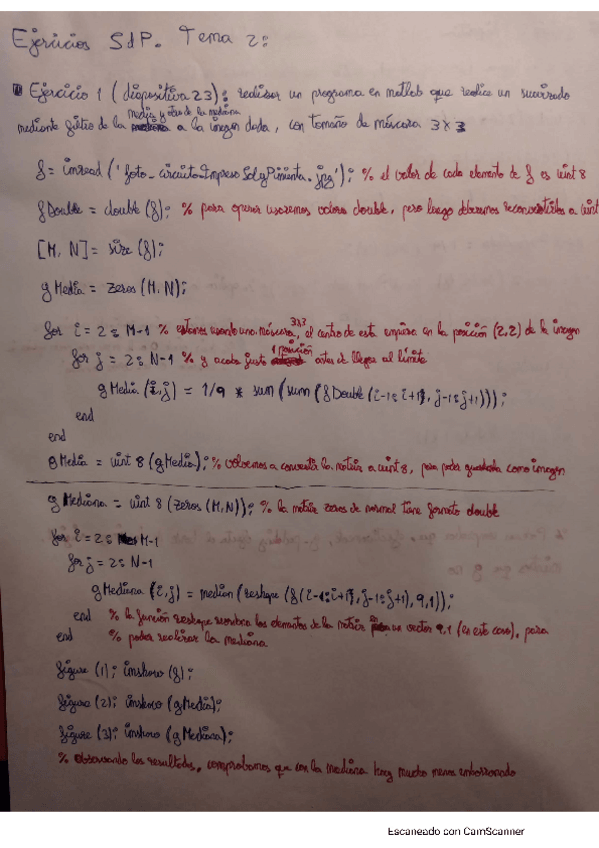 Ejercicios SdP. Tema 2:
Ejercicio 1 (diapositiva 23): realizar un programa en matlab que realice un suavizado
media y otro de la mediana
mediante filtro de la a la imagen dada, con tamaño de máscara 3x3
f = imread('foto_circuitoImpresoSalyPimienta.jpg'); % el valor de cada elemento de f es uint8
fDouble = double(f); % para operar usaremos valores double, pero luego deberemos reconvertirlos a uint
[M, N] = size(f);
gMedia = zeros(M,N);
for i = 2:M-1 % estamos usando una máscara 3x3, el centro de esta empieza en la posición (2,2) de la imagen
for j = 2:N-1 % y acaba justo 1 posición antes de llegar al límite
gMedia(i,j) = 1/9 * sum(sum(fDouble(i-1:i+1, j-1:j+1)));
end
end
gMedia = uint8(gMedia); % volvemos a convertir la matriz a uint8, para poder guardarla como imagen
gMediana = uint8(zeros(M,N)); % la matriz zeros de normal tiene formato double
for i = 2: M-1
for j = 2:N-1
gMediana(i,j) = median(reshape(f(i-1:i+1, j-1:j+1), 9,1));
end % la función reshape reordena los elementos de la matriz en un vector 9,1 (en este caso), para
end % poder realizar la mediana
figure(1); imshow(f);
figure(2); imshow(gMedia);
figure(3); imshow(gMediana);
% Observando los resultados, comprobamos que con la mediana hay mucho menos emborronado
Escaneado con CamScanner